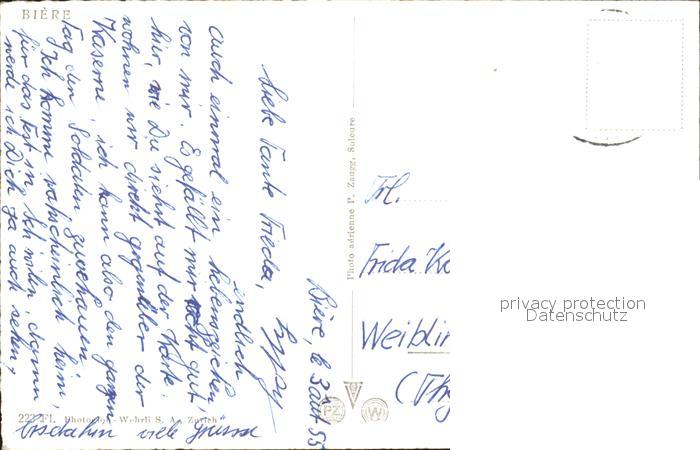 BIÈRE
Bière, le 3 août 55
Liebe Tante Frieda,
endlich
auch einmal ein Lebenszeichen
von mir. Es gefällt mir recht gut
hier, wie Du siehst auf der Karte
wohnen wir direkt gegenüber der
Kaserne, ich kann also den ganzen
Tag den Soldaten zuschauen.
Ich komme wahrscheinlich heim,
für das Fest in, dann
werde ich Dich ja auch sehen,
bisdahin viele Grüsse
222 Fl. Photoglob-Wehrli S. A., Zürich
Photo aérienne P. Zaugg, Soleure
PZ
W
Frl.
Frida
Weiblin
(Thg
privacy protection
Datenschutz